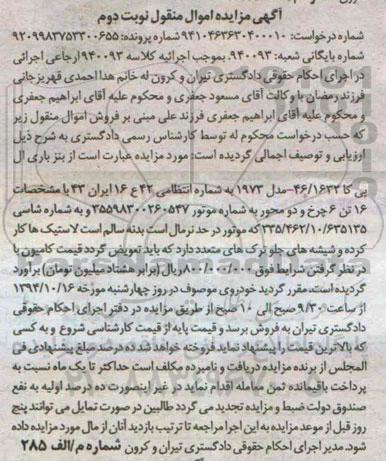 آگهی مزایده اموال منقول نوبت دوم
شماره درخواست: ۹۴۱۰۴۶۳۶۳۰۴۰۰۰۱۰ شماره پرونده: ۹۲۰۹۹۸۳۷۵۳۳۰۰۶۵۵
شماره بایگانی شعبه: ۹۴۰۰۹۳. بموجب اجرائیه کلاسه ۹۴۰۰۹۳ ارجاعی اجرائی
در اجرای احکام حقوقی دادگستری تیران و کرون له خانم هدا احمدی قهریزجانی
فرزند رمضان با وکالت آقای مسعود جعفری و محکوم علیه آقای ابراهیم جعفری
و محکوم علیه آقای ابراهیم جعفری فرزند علی مبنی بر فروش اموال منقول زیر
که حسب درخواست محکوم له توسط کارشناس رسمی دادگستری به شرح ذیل
ارزیابی و توصیف اجمالی گردیده است: مورد مزایده عبارت است از بنز باری ال
پی کا ۴۶/۱۶۳۳-مدل ۱۹۷۳ به شماره انتظامی ۴۲ ع ۱۶ ایران ۴۳ با مشخصات
۱۶ تن ۶ چرخ و دو محور به شماره موتور ۳۵۵۹۸۳۰۰۲۶۰۵۴۷ و به شماره شاسی
۳۳۵/۴۶۲/۱۰/۶۳۵۱۳۵ که موتور در حد نرمال است بدنه سالم است لاستیک ها کار
کرده و شیشه های جلو ترک های متعدد دارد که باید تعویض گردد قیمت کامیون با
در نظر گرفتن شرایط فوق ۸۰۰/۰۰۰/۰۰۰ ریال (برابر هشتاد میلیون تومان) برآورد
گردیده است. مقرر گردید خودروی موصوف در روز چهارشنبه مورخه ۱۳۹۴/۱۰/۱۶
از ساعت ۹/۳۰ صبح الی ۱۰ صبح از طریق مزایده در دفتر اجرای احکام حقوقی
دادگستری تیران به فروش برسد و قیمت پایه از قیمت کارشناسی شروع و به کسی
که بالاترین قیمت را پیشنهاد نماید فروخته خواهد شد ده درصد مبلغ پیشنهادی فی
المجلس از برنده مزایده دریافت و نامبرده مکلف است حداکثر تا یک ماه نسبت به
پرداخت باقیمانده ثمن معامله اقدام نماید در غیر اینصورت ده درصد اولیه به نفع
صندوق دولت ضبط و مزایده تجدید می گردد طالبین در صورت تمایل می توانند پنج
روز قبل از موعد مزایده به این اجرا مراجعه تا ترتیب بازدید آنان از مال مورد مزایده داده
شود. مدیر اجرای احکام حقوقی دادگستری تیران و کرون شماره م/الف ۲۸۵